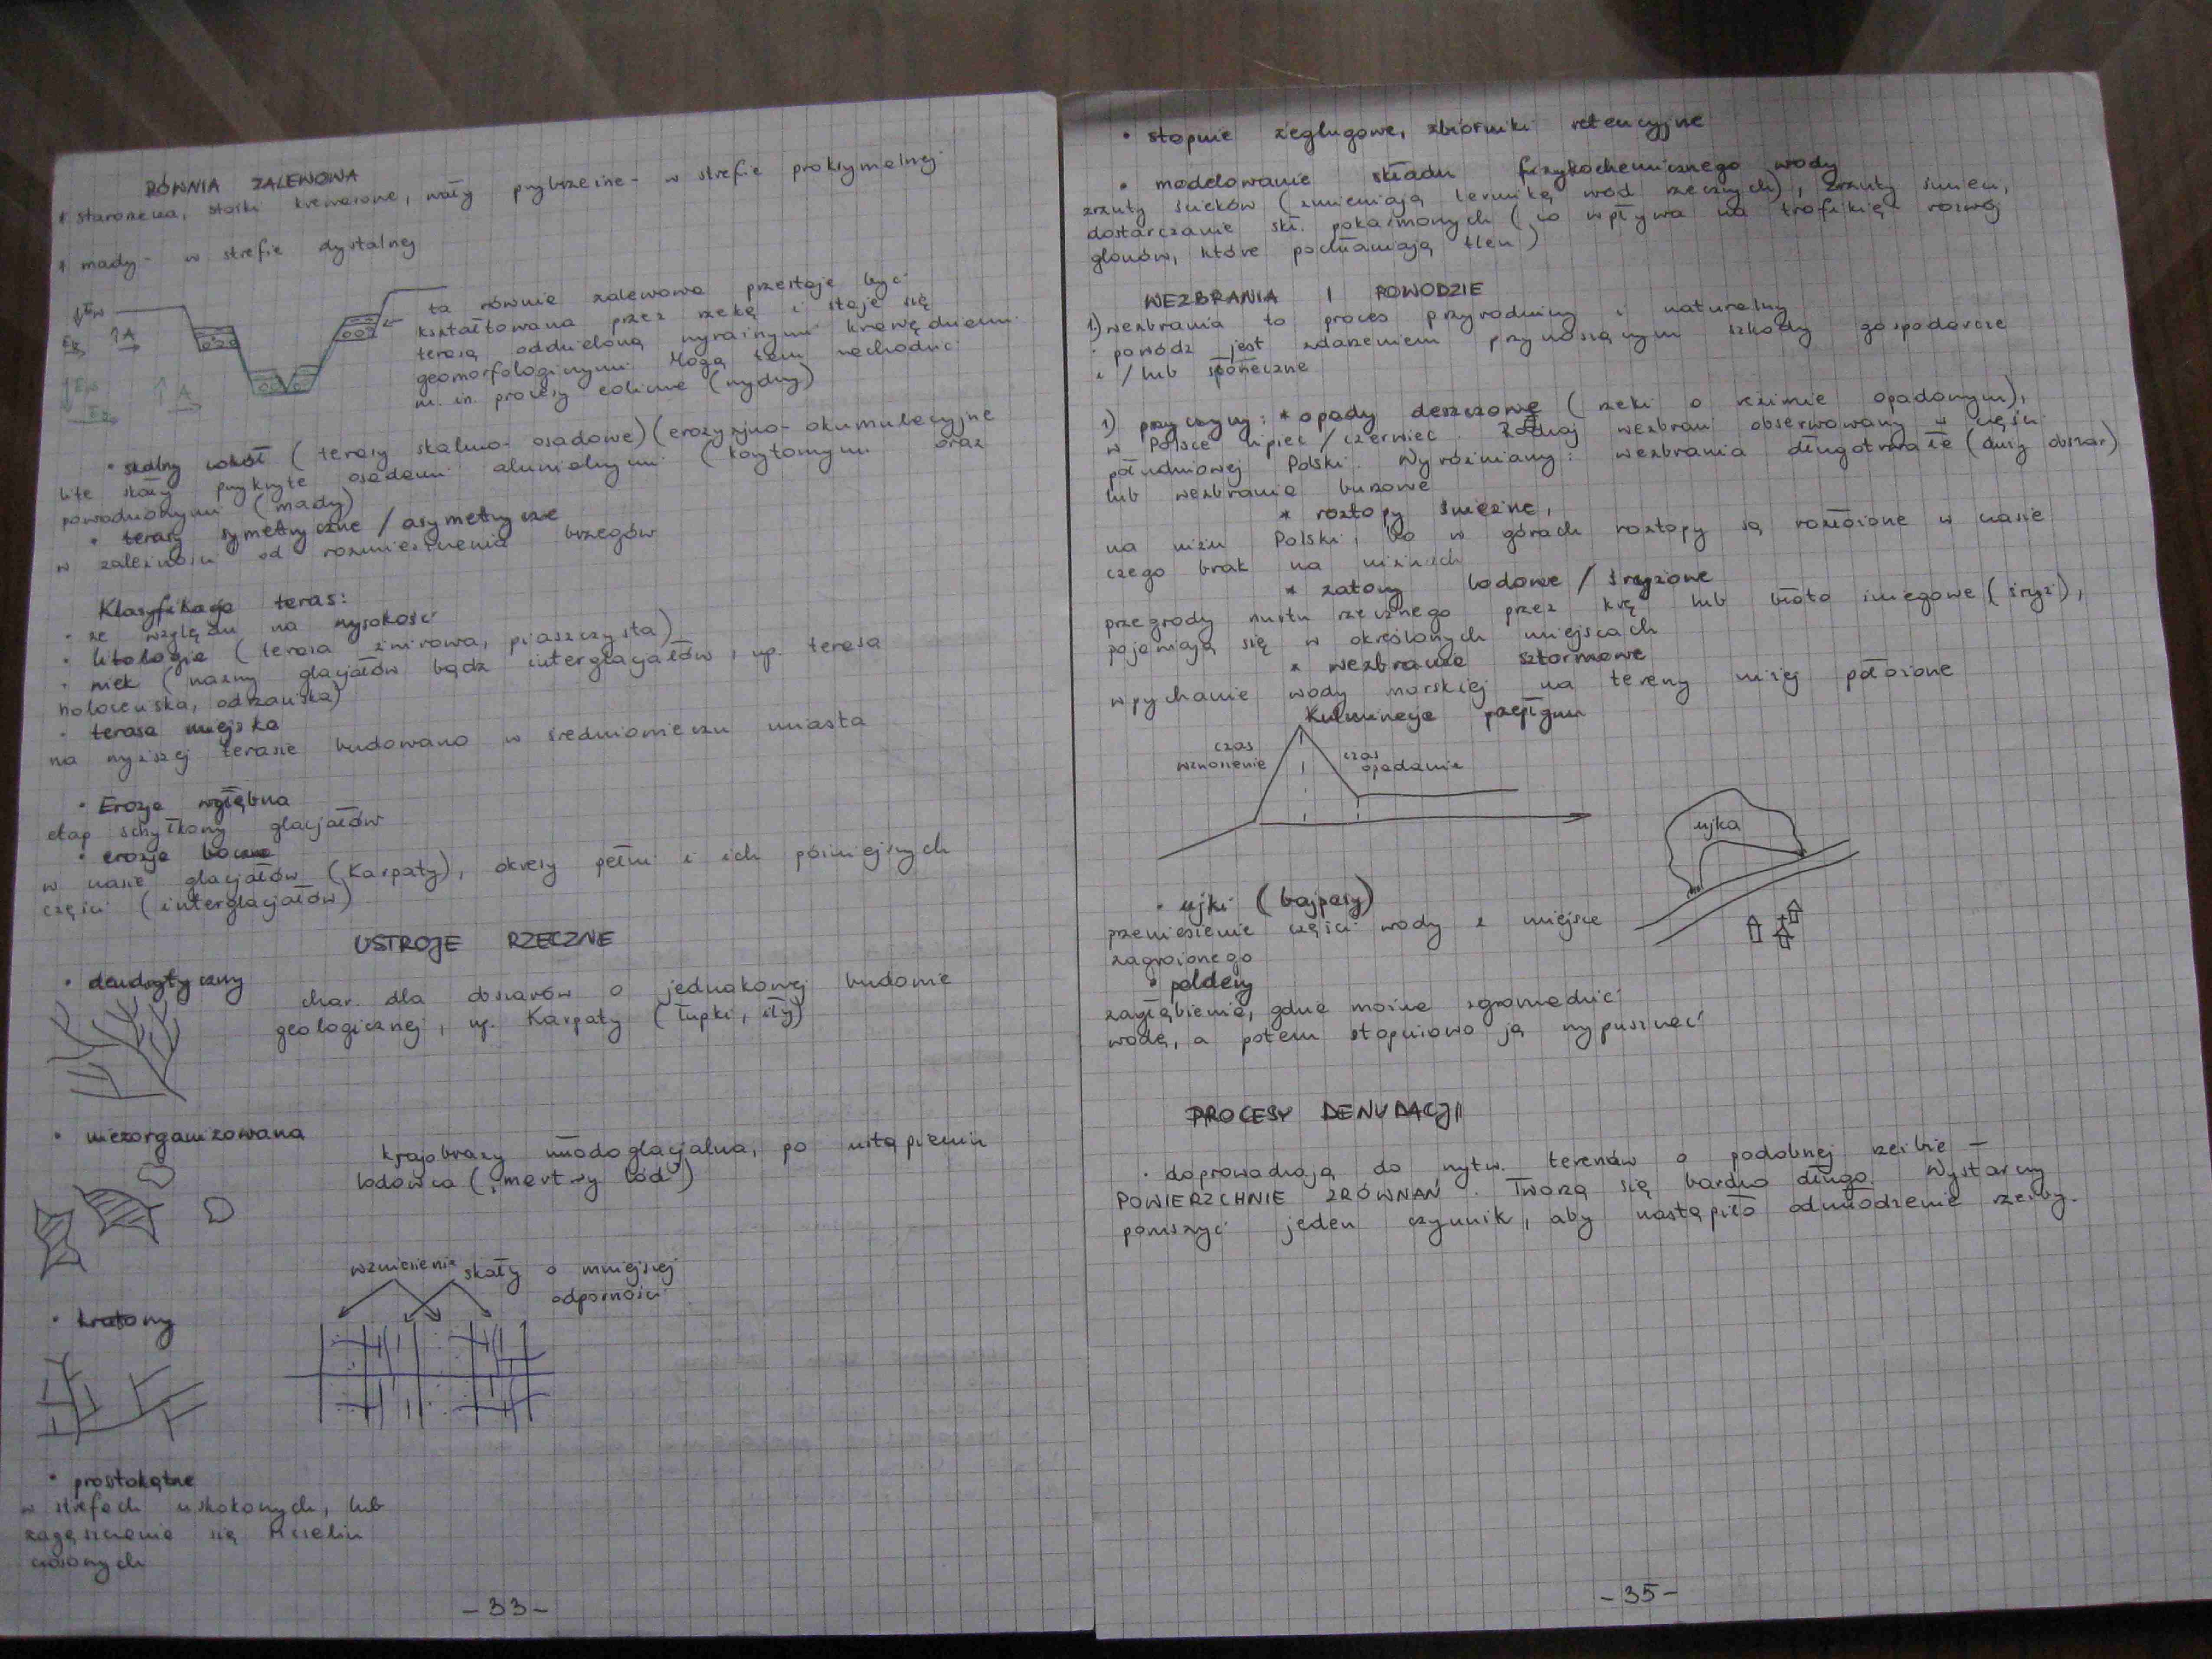 RÓWNIA ZALEWOWA
* starorzecza, stożki krewasowe, wały przybrzeżne - w strefie proksymalnej
* mady - w strefie dystalnej
↓Ew
Eb ↑A
ta równia zalewowa przestaje być
kształtowana przez rzekę i staje się
terasą oddzieloną wyraźnymi krawędziami
geomorfologicznymi. Mogą tam zachodzić
m.in. procesy eoliczne (wydmy)
↓Ew ↑A
Eb
• skalny cokół (terasy skalno-osadowe) (erozyjno-akumulacyjne
lite skały przykryte osadami aluwialnymi (korytowymi oraz
powodziowymi (mady)
• terasy symetryczne / asymetryczne
w zależności od rozmieszczenia brzegów
Klasyfikacja teras:
• ze względu na wysokość
• litologię (terasa żwirowa, piaszczysta)
• wiek (nazwy glacjałów bądź interglacjałów, np. terasa
holoceńska, odrzańska)
• terasa miejska
na wyższej terasie budowano w średniowieczu miasta
• Erozja wgłębna
etap schyłkowy glacjałów
• erozja boczna
w czasie glacjałów (Karpaty), okresy pełni i ich późniejszych
części (interglacjałów)
USTROJE RZECZNE
• dendrytyczny
char. dla obszarów o jednakowej budowie
geologicznej, np. Karpaty (łupki, iły)
• niezorganizowana
krajobrazy młodoglacjalna, po ustąpieniu
lodowca („martwy lód”)
wzniesienia skały o mniejszej
odporności
• kratowy
• prostokątne
w strefach uskokowych, lub
zagęszczenie się szczelin
ciosowych
- 33 -
• stopnie żeglugowe, zbiorniki retencyjne
• modelowanie składu fizykochemicznego wody
zrzuty ścieków (zmieniają termikę wód rzecznych), zrzuty śmieci,
dostarczanie skł. pokarmowych (co wpływa na trofikię - rozwój
glonów, które pochłaniają tlen)
WEZBRANIA I POWODZIE
1) wezbrania to proces przyrodniczy i naturalny
• powódź jest zdarzeniem przynoszącym szkody gospodarcze
i / lub społeczne
1) przyczyny: * opady deszczowe (rzeki o reżimie opadowym),
w Polsce lipiec / czerwiec. Rodzaj wezbrań obserwowany w części
południowej Polski. Wyróżniamy: wezbrania długotrwałe (duży obszar)
lub wezbrania burzowe
* roztopy śnieżne,
na niżu Polski, bo w górach roztopy są rozłożone w czasie
czego brak na nizinach
* zatory lodowe / śryżowe
przegrody nurtu rzecznego przez krę lub błoto śniegowe (śryż),
pojawiają się w określonych miejscach
* wezbrania sztormowe
wpychanie wody morskiej na tereny niżej położone
Kulminacja przepływu
czas
wznoszenia
czas
opadania
ujka
• ujki (bajpasy)
przeniesienie części wody z miejsca
zagrożonego
• poldery
zagłębienia, gdzie można zgromadzić
wodę, a potem stopniowo ją wypuszczać
PROCESY DENUDACJI
• doprowadzają do wytw. terenów o podobnej rzeźbie -
POWIERZCHNIE ZRÓWNAŃ. Tworzą się bardzo długo. Wystarczy
poruszyć jeden czynnik, aby nastąpiło odmłodzenie rzeźby.
- 35 -